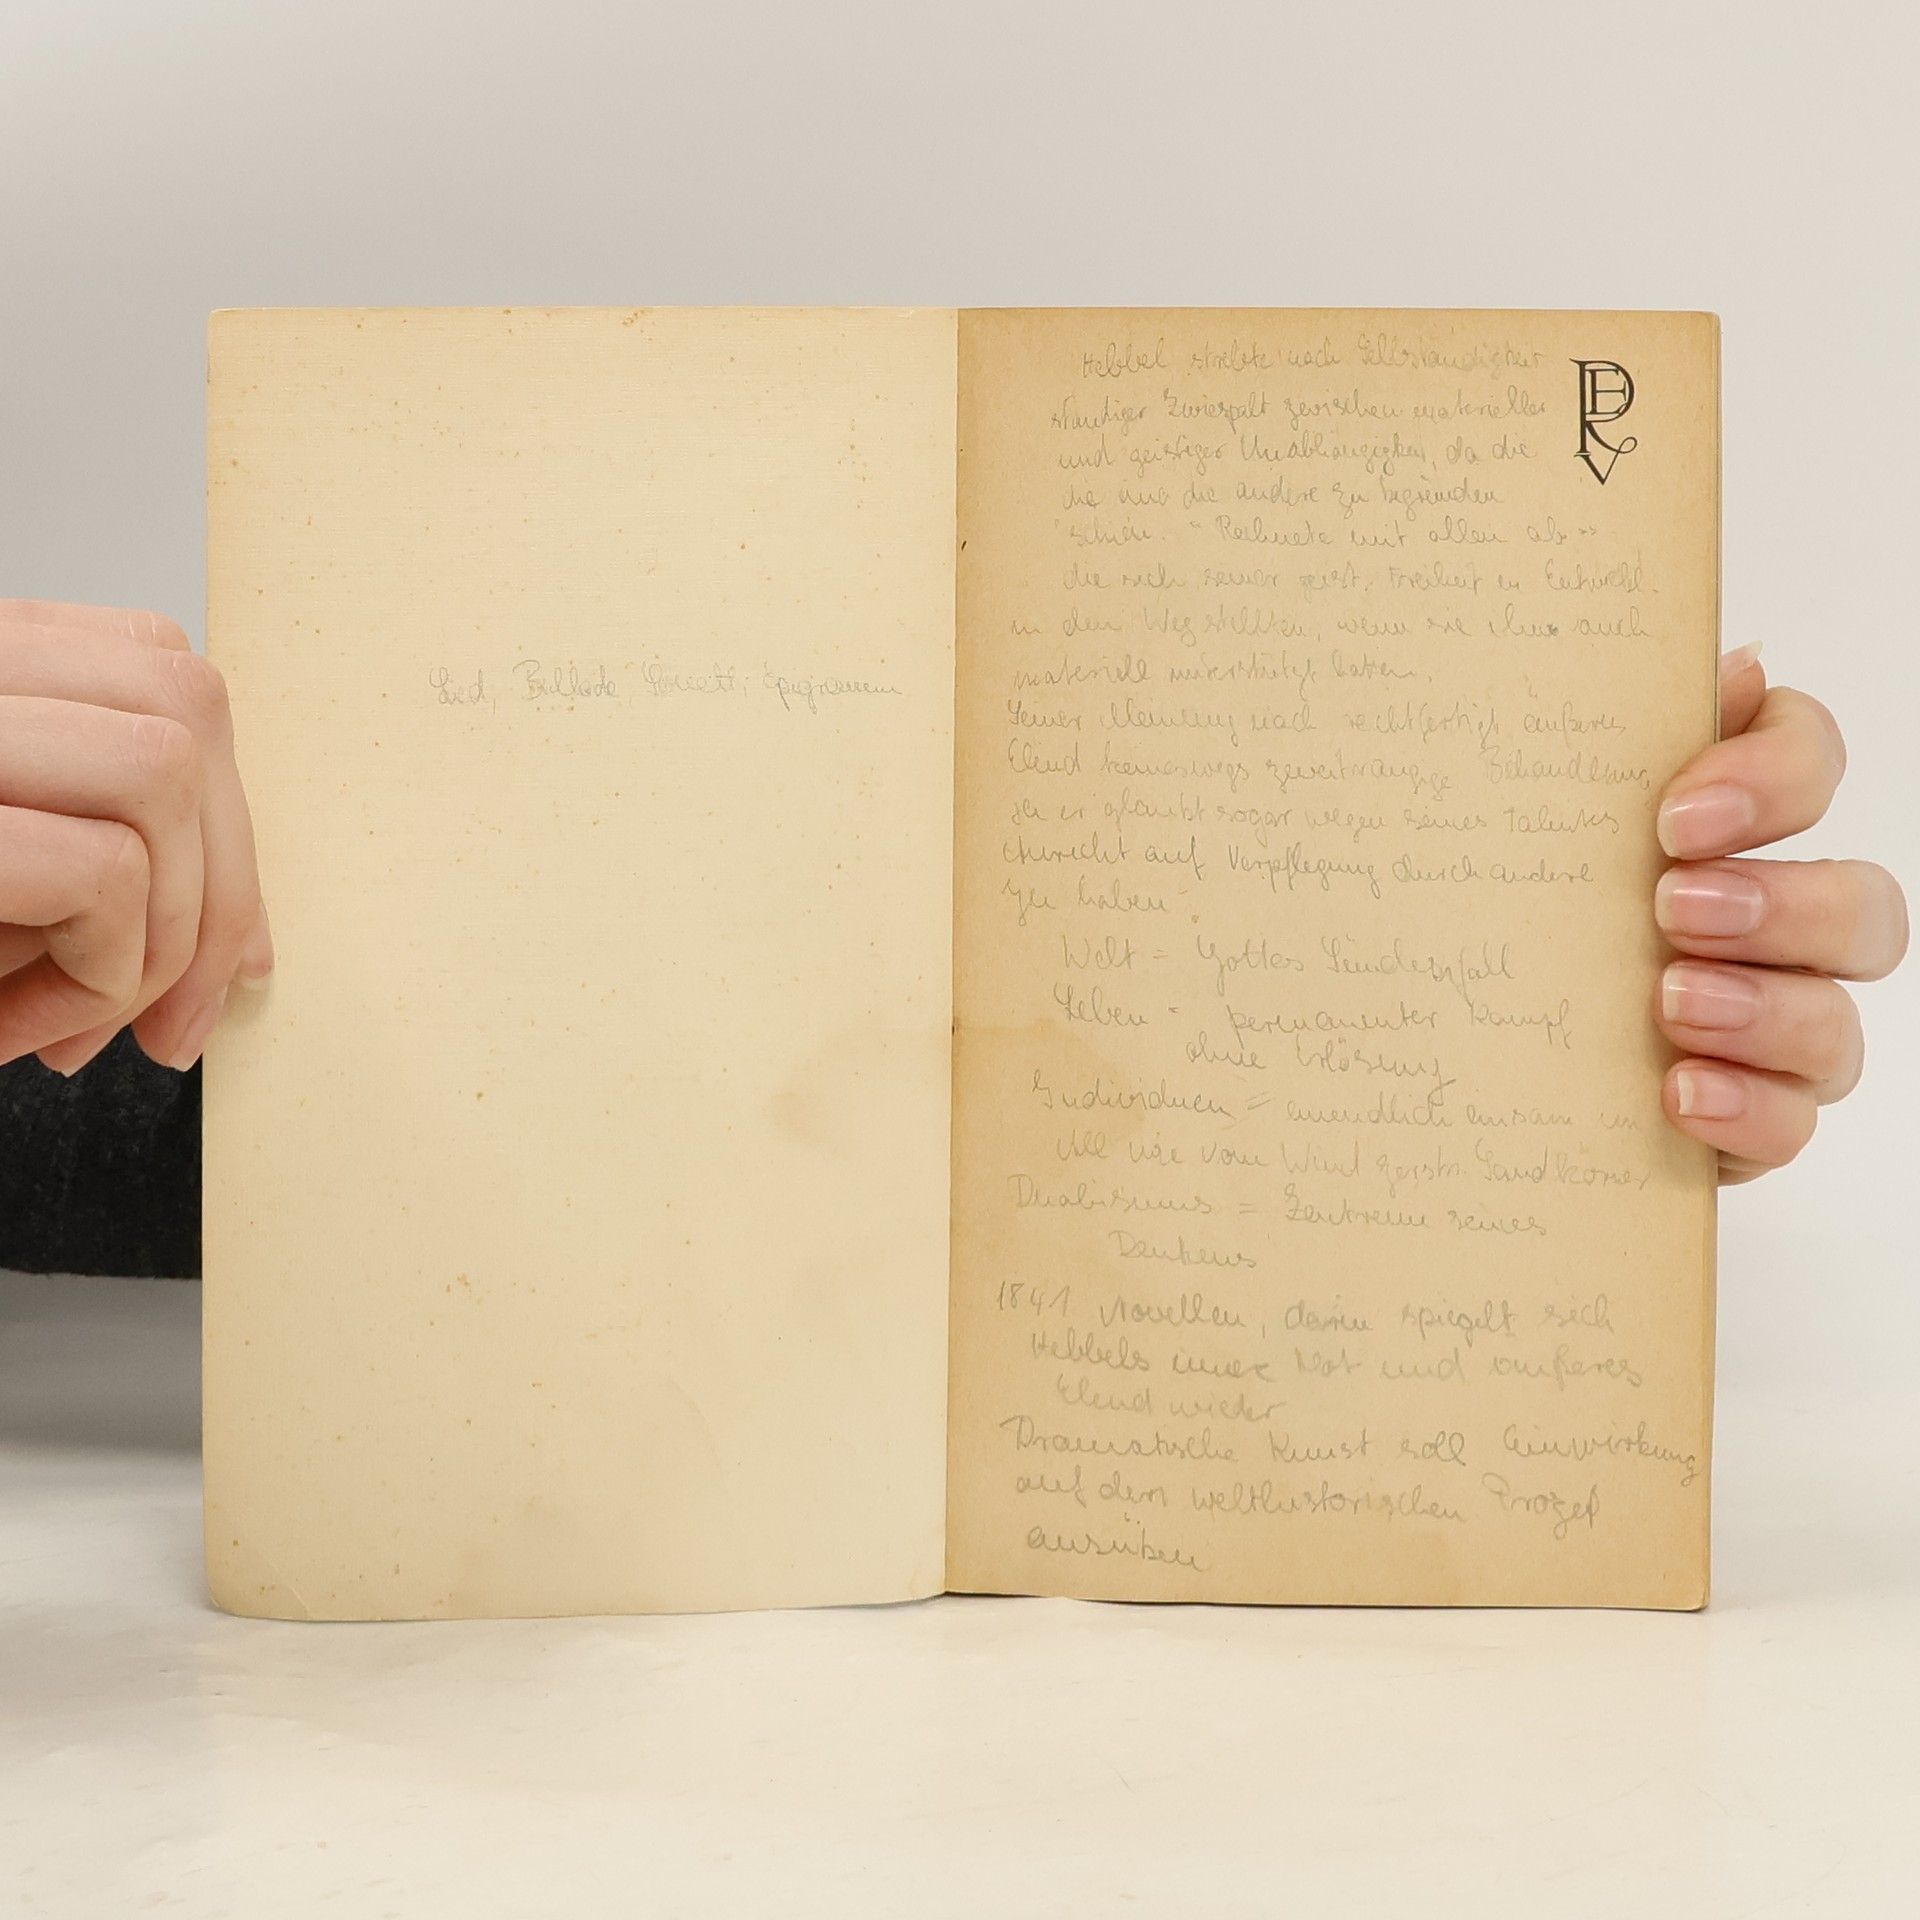 Lied, Ballade, Sonett, Epigramm
Hebbel strebte nach Selbständigkeit
ständiger Zwiespalt zwischen materieller
und geistiger Unabhängigkeit, da die
die eine die andere zu
schien. "Rechnete mit allen ab"
die sich seiner geist. Freiheit u Entwickl.
in den Weg stellten, wenn sie ihn auch
materiell unterstützt hatten.
Seiner Meinung nach rechtfertigt äußeres
Elend keineswegs zweitrangige Behandlung,
ja er glaubt sogar wegen seines Talentes
Anrecht auf Verpflegung durch andere
zu haben
Welt = Gottes Sündenfall
Leben = permanenter Kampf
ohne Erlösung
Individuen = unendlich einsam im
All wie vom Wind zerstr. Sandkörner
Dualismus = Zentrum seines
Denkens
1841 Novellen, darin spiegelt sich
Hebbels innere Not und äußeres
Elend wieder
Dramatische Kunst soll Einwirkung
auf den welthistorischen Prozeß
ausüben